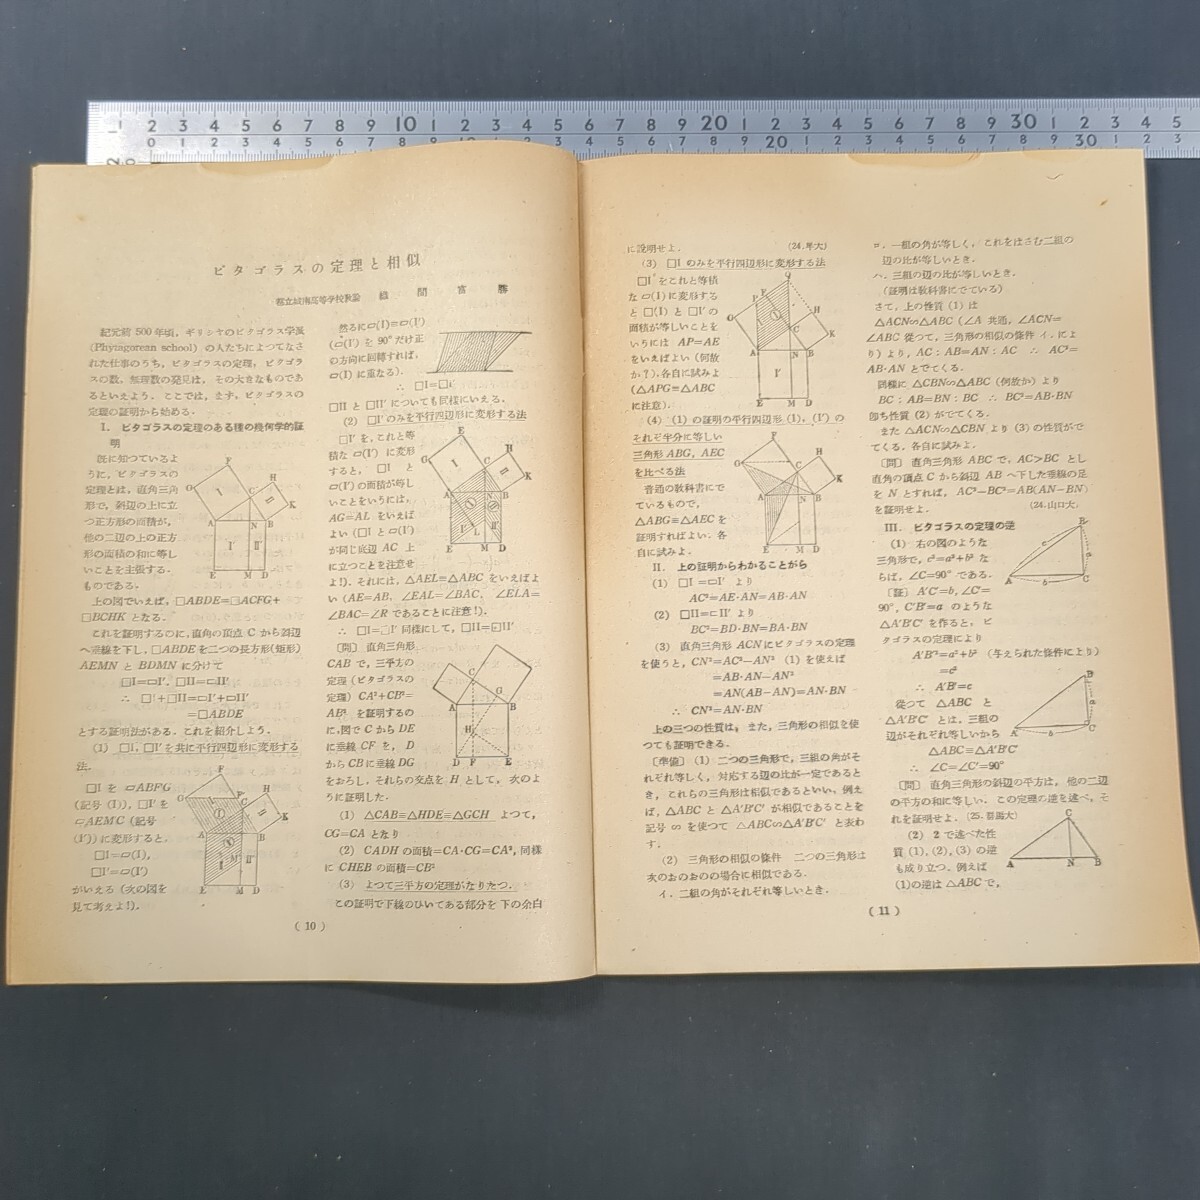 ピタゴラスの定理と相似
紀元前 500 年頃, ギリシヤのピタゴラス学派
(Phytagorean school) の人たちによつてなさ
れた仕事のうち, ピタゴラスの定理, ピタゴラ
スの数, 無理数の発見は, その大きなものであ
るといえよう. ここでは, まず, ピタゴラスの
定理の証明から始める.
I. ピタゴラスの定理のある種の幾何学的証
明
既に知つているよ
うに, ピタゴラスの
定理とは, 直角三角
形で, 斜辺の上に立
つ正方形の面積が,
他の二辺の上の正方
形の面積の和に等し
いことを主張する.
ものである.
上の図でいえば, □ABDE=□ACFG+
□BCHK となる.
これを証明するのに, 直角の頂点 C から斜辺
へ垂線を下し, □ABDE を二つの長方形(矩形)
AEMN と BDMN に分けて
□I=▭I', □II=▭II'
∴ □I+□II=▭I'+▭II'
=□ABDE
とする証明法がある. これを紹介しよう.
(1) □I, □I' を共に平行四辺形に変形する
法.
□I を ▱ABFG
(記号 (I)), □I' を
▱AEMC (記号
(I')) に変形すると,
□I=▱(I),
□I'=▱(I')
がいえる (次の図を
見て考えよ!).
然るに▱(I)=▱(I')
(▱(I') を 90° だけ正
の方向に回轉すれば,
▱(I) に重なる).
∴ □I=□I'
□II と □II' についても同様にいえる.
(2) □I' のみを平行四辺形に変形する法
□I' を, これと等
積な ▱(I') に変形
すると, □I と
▱(I') の面積が等し
いことをいうには,
AG=AL をいえば
よい (□I と ▱(I')
が同じ底辺 AC 上
に立つことを注意せ
よ!). それには, △AEL≡△ABC をいえばよ
い (AE=AB, ∠EAL=∠BAC, ∠ELA=
∠BAC=∠R であることに注意!).
∴ □I=□I' 同様にして, □II=□II'
[問] 直角三角形
CAB で, 三平方の
定理 (ピタゴラスの
定理) CA²+CB²=
AB² を証明するの
に, 図で C から DE
に垂線 CF を, D
から CB に垂線 DG
をおろし, それらの交点を H として, 次のよ
うに証明した.
(1) △CAB≡△HDE≡△GCH よつて,
CG=CA となり
(2) CADH の面積=CA·CG=CA², 同様
に CHEB の面積=CB²
(3) よつて三平方の定理がなりたつ.
この証明で下線のひいてある部分を下の余白
( 10 )
に説明せよ. (24.年大)
(3) □I のみを平行四辺形に変形する法
□I をこれと等積
な ▱(I) に変形する
と ▱(I) と □I' の
面積が等しいことを
いうには AP=AE
をいえばよい (何故
か?). 各自に試みよ
(△APG≡△ABC
に注意).
(4) (1) の証明の平行四辺形 (I), (I') の
それぞ半分に等しい
三角形 ABG, AEC
を比べる法
普通の教科書にで
ているもので,
△ABG≡△AEC を
証明すればよい. 各
自に試みよ.
II. 上の証明からわかることがら
(1) □I =▭I' より
AC²=AE·AN=AB·AN
(2) □II=▭II' より
BC²=BD·BN=BA·BN
(3) 直角三角形 ACN にピタゴラスの定理
を使うと, CN²=AC²-AN² (1) を使えば
=AB·AN-AN²
=AN(AB-AN)=AN·BN
∴ CN²=AN·BN
上の三つの性質は, また, 三角形の相似を使
つても証明できる.
[準備] (1) 二つの三角形で, 三組の角がそ
れぞれ等しく, 対応する辺の比が一定であると
き, これらの三角形は相似であるといい, 例え
ば, △ABC と △A'B'C' が相似であることを
記号 ∽ を使つて △ABC∽△A'B'C' と表わ
す.
(2) 三角形の相似の條件 二つの三角形は
次のおのおのの場合に相似である.
イ. 二組の角がそれぞれ等しいとき.
ロ. 一組の角が等しく, これをはさむ二組の
辺の比が等しいとき.
ハ. 三組の辺の比が等しいとき.
(証明は教科書にでている)
さて, 上の性質 (1) は
△ACN∽△ABC (∠A 共通, ∠ACN=
∠ABC 從つて, 三角形の相似の條件 イ. によ
り) より, AC : AB=AN : AC ∴ AC²=
AB·AN とでてくる.
同様に △CBN∽△ABC (何故か) より
BC : AB=BN : BC ∴ BC²=AB·BN
即ち性質 (2) がでてくる.
また △ACN∽△CBN より (3) の性質がで
てくる. 各自に試みよ.
[問] 直角三角形 ABC で, AC>BC とし
直角の頂点 C から斜辺 AB へ下した垂線の足
を N とすれば, AC²-BC²=AB(AN-BN)
を証明せよ. (24.山口大)
III. ピタゴラスの定理の逆
(1) 右の図のような
三角形で, c²=a²+b² な
らば, ∠C=90° である.
[証] A'C'=b, ∠C'=
90°, C'B'=a のような
△A'B'C' を作ると, ピ
タゴラスの定理により
A'B'²=a²+b² (与えられた條件により)
=c²
∴ A'B'=c
從つて △ABC と
△A'B'C' とは, 三組の
辺がそれぞれ等しいから
△ABC≡△A'B'C'
∴ ∠C=∠C'=90°
[問] 直角三角形の斜辺の平方は, 他の二辺
の平方の和に等しい. この定理の逆を述べ, そ
れを証明せよ.
(2) 2 で述べた性
質 (1), (2), (3) の逆
も成り立つ. 例えば
(1) の逆は △ABC で,
( 11 )